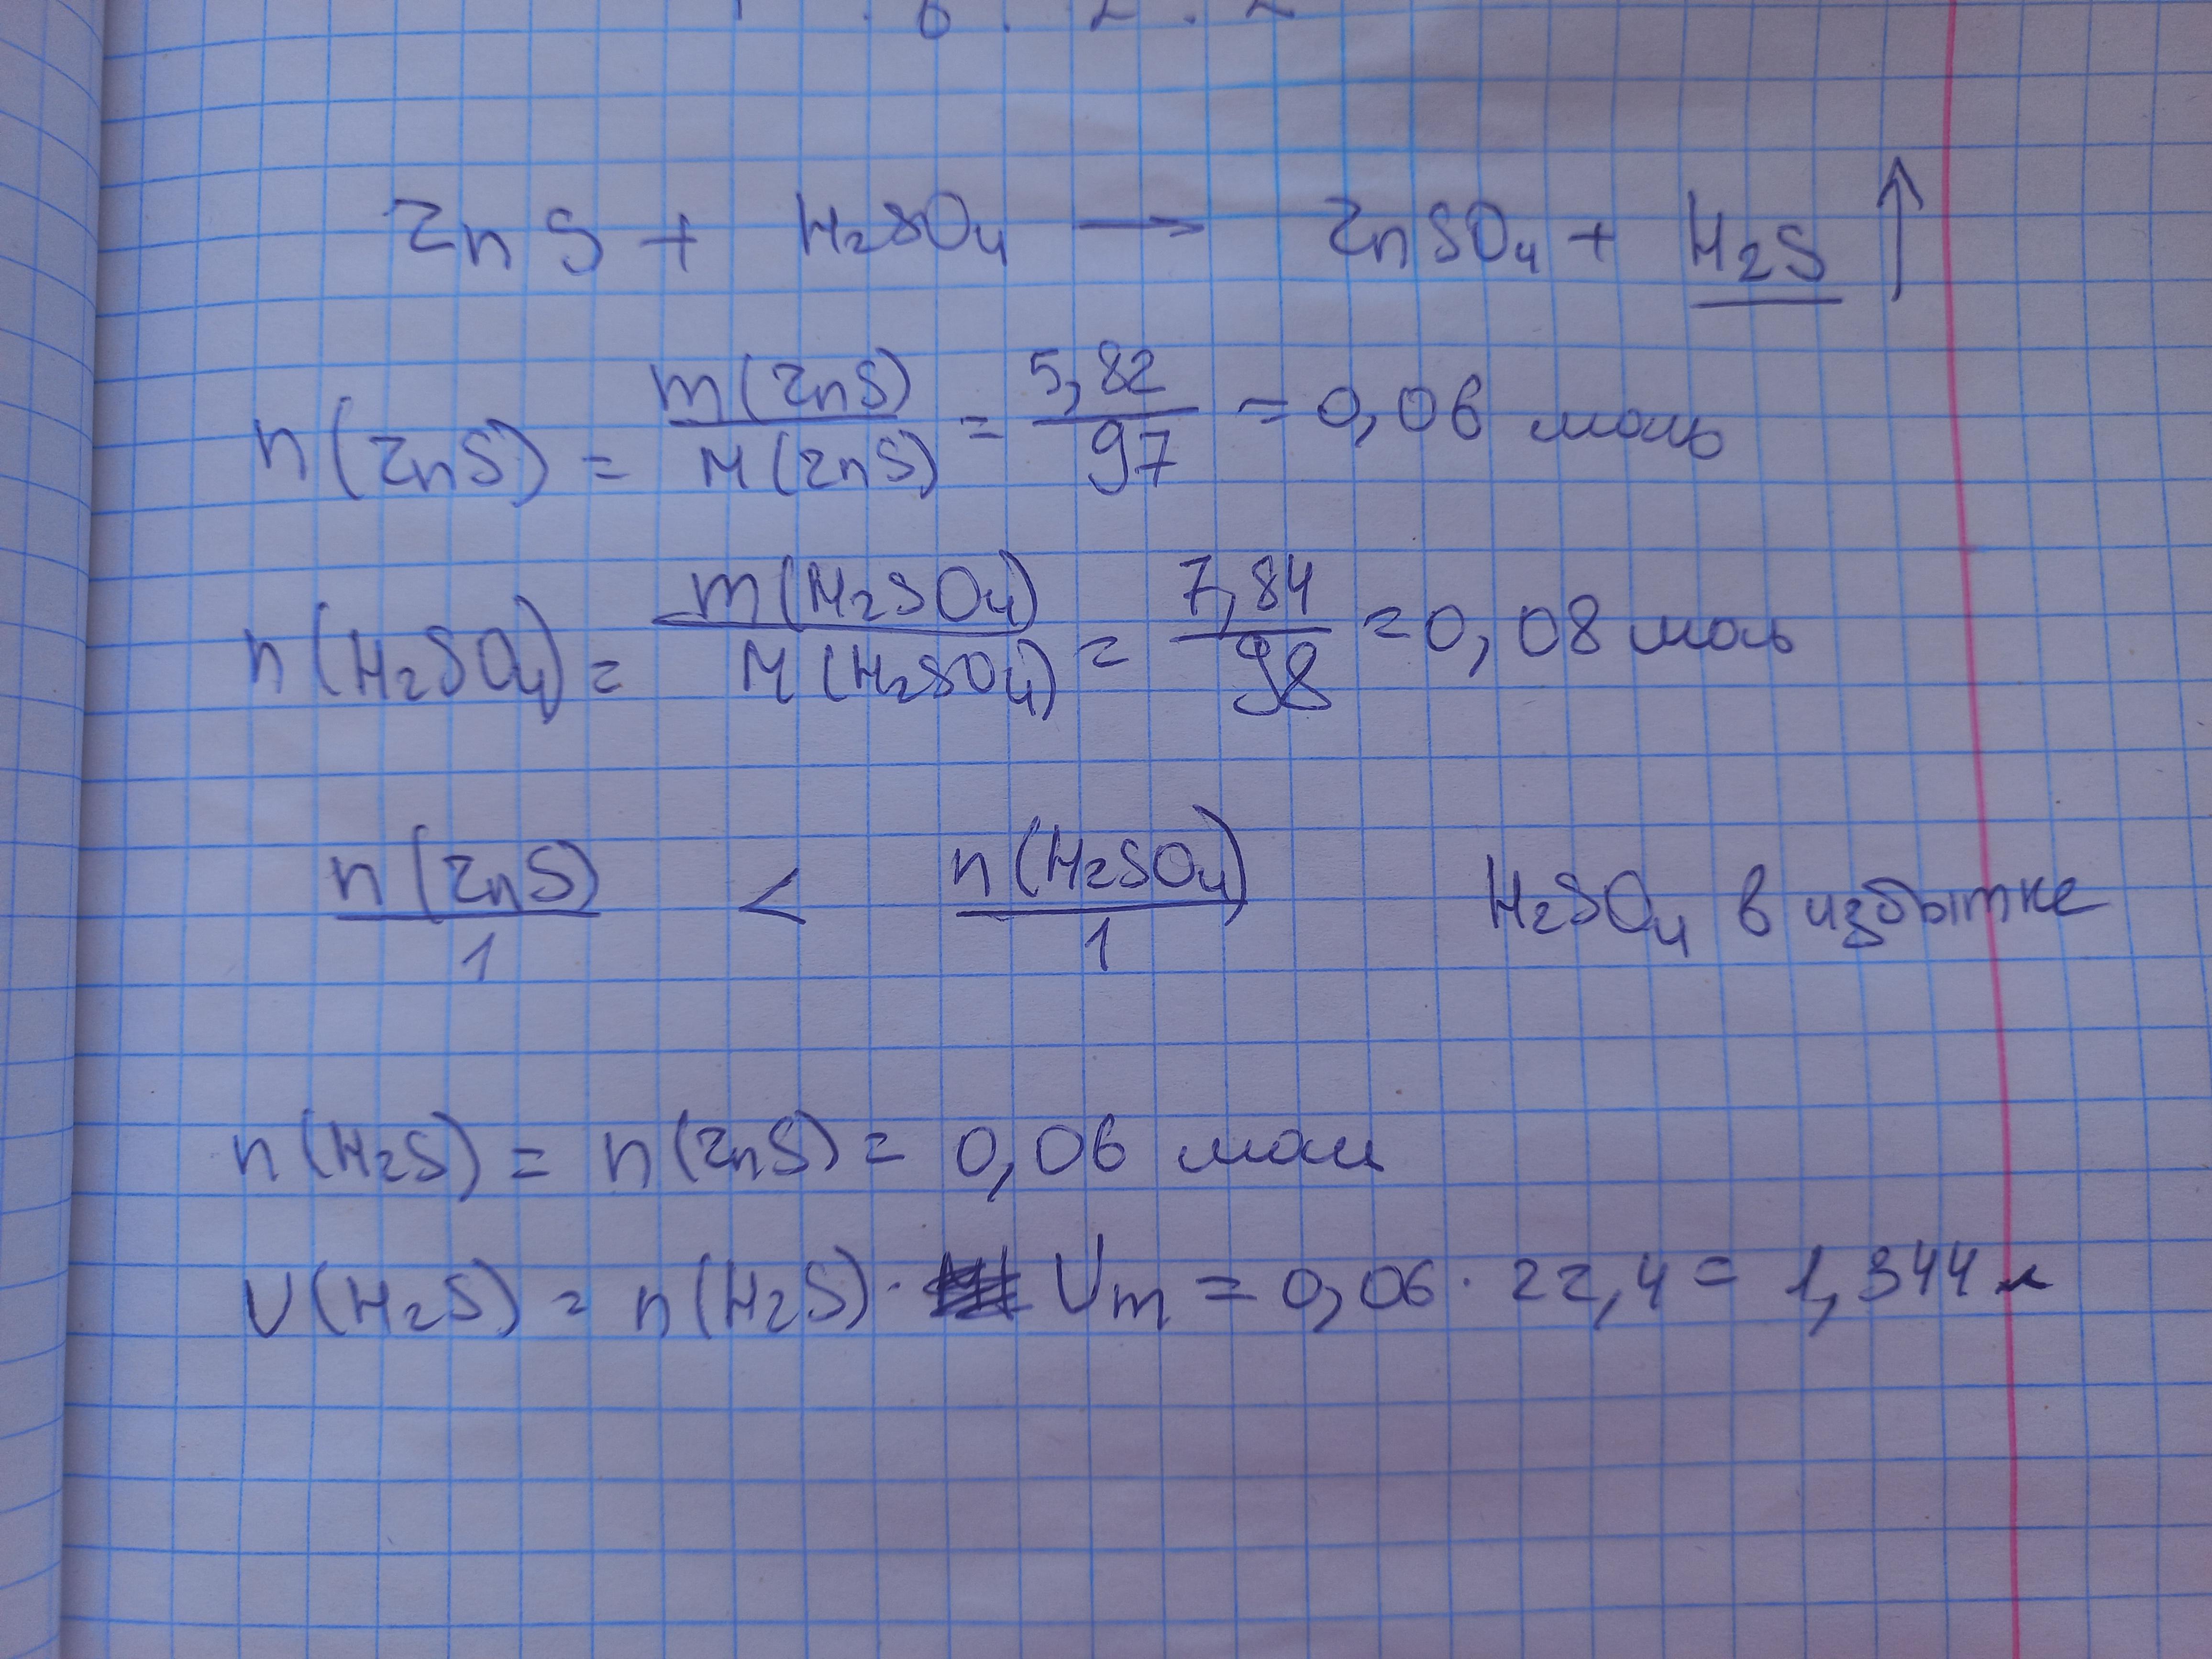 ZnS + H₂SO₄ → ZnSO₄ + H₂S ↑
n(ZnS) = m(ZnS) / M(ZnS) = 5,82 / 97 = 0,06 моль
n(H₂SO₄) = m(H₂SO₄) / M(H₂SO₄) = 7,84 / 98 = 0,08 моль
n(ZnS) / 1 < n(H₂SO₄) / 1 H₂SO₄ в избытке
n(H₂S) = n(ZnS) = 0,06 моль
V(H₂S) = n(H₂S) · Vm = 0,06 · 22,4 = 1,344 л